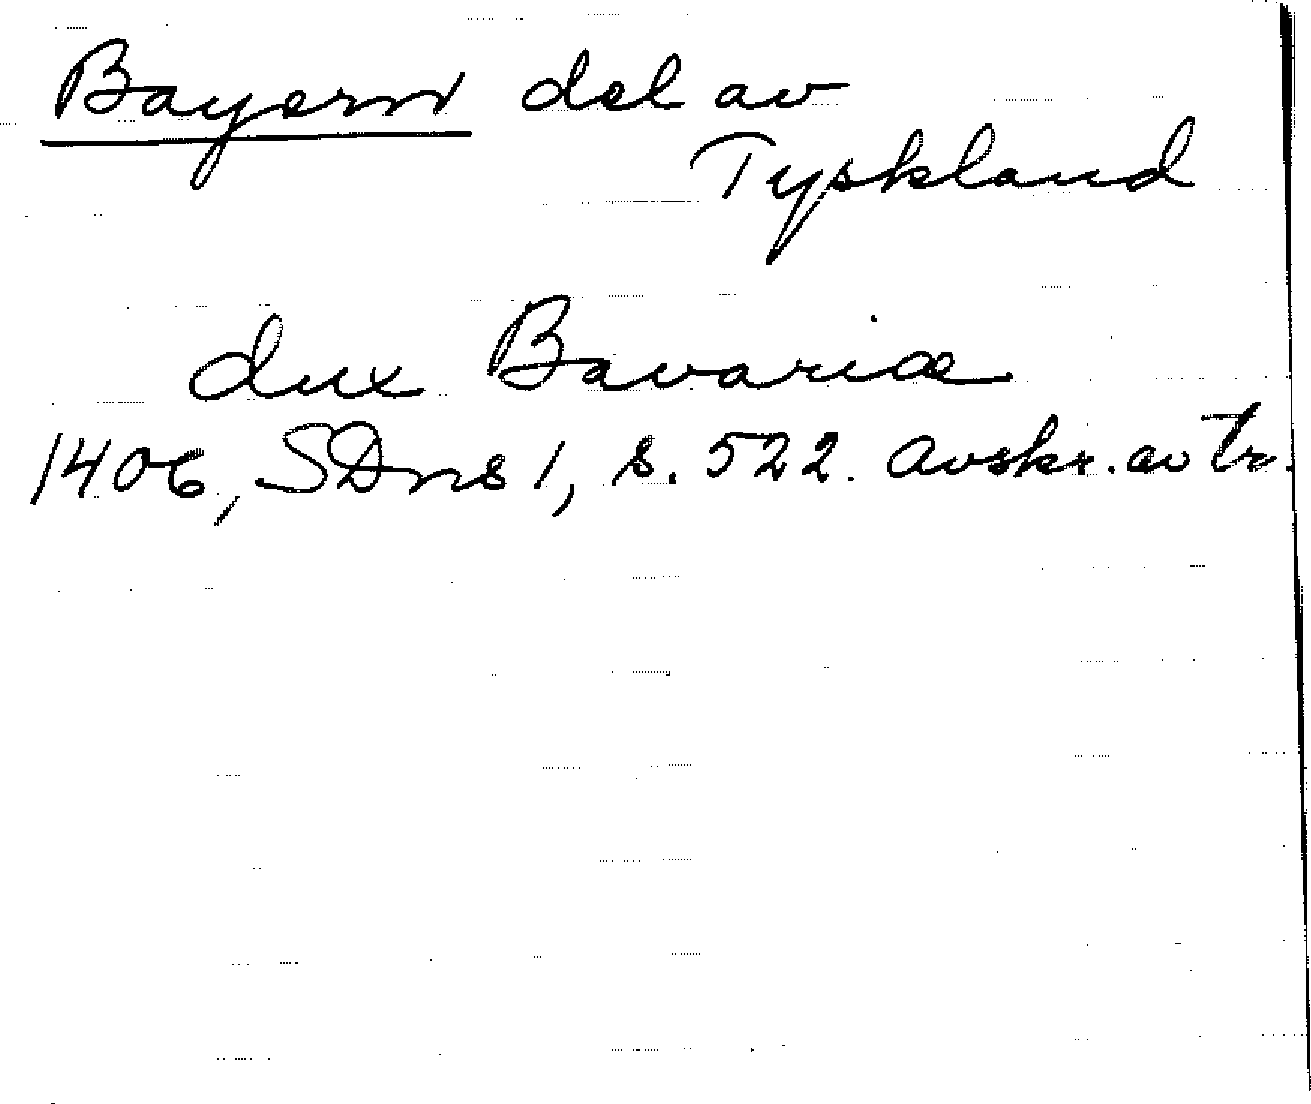 Bayern del av
Tyskland
dux Bavariæ
1406, SDns 1, s. 522. avskr. av tr.